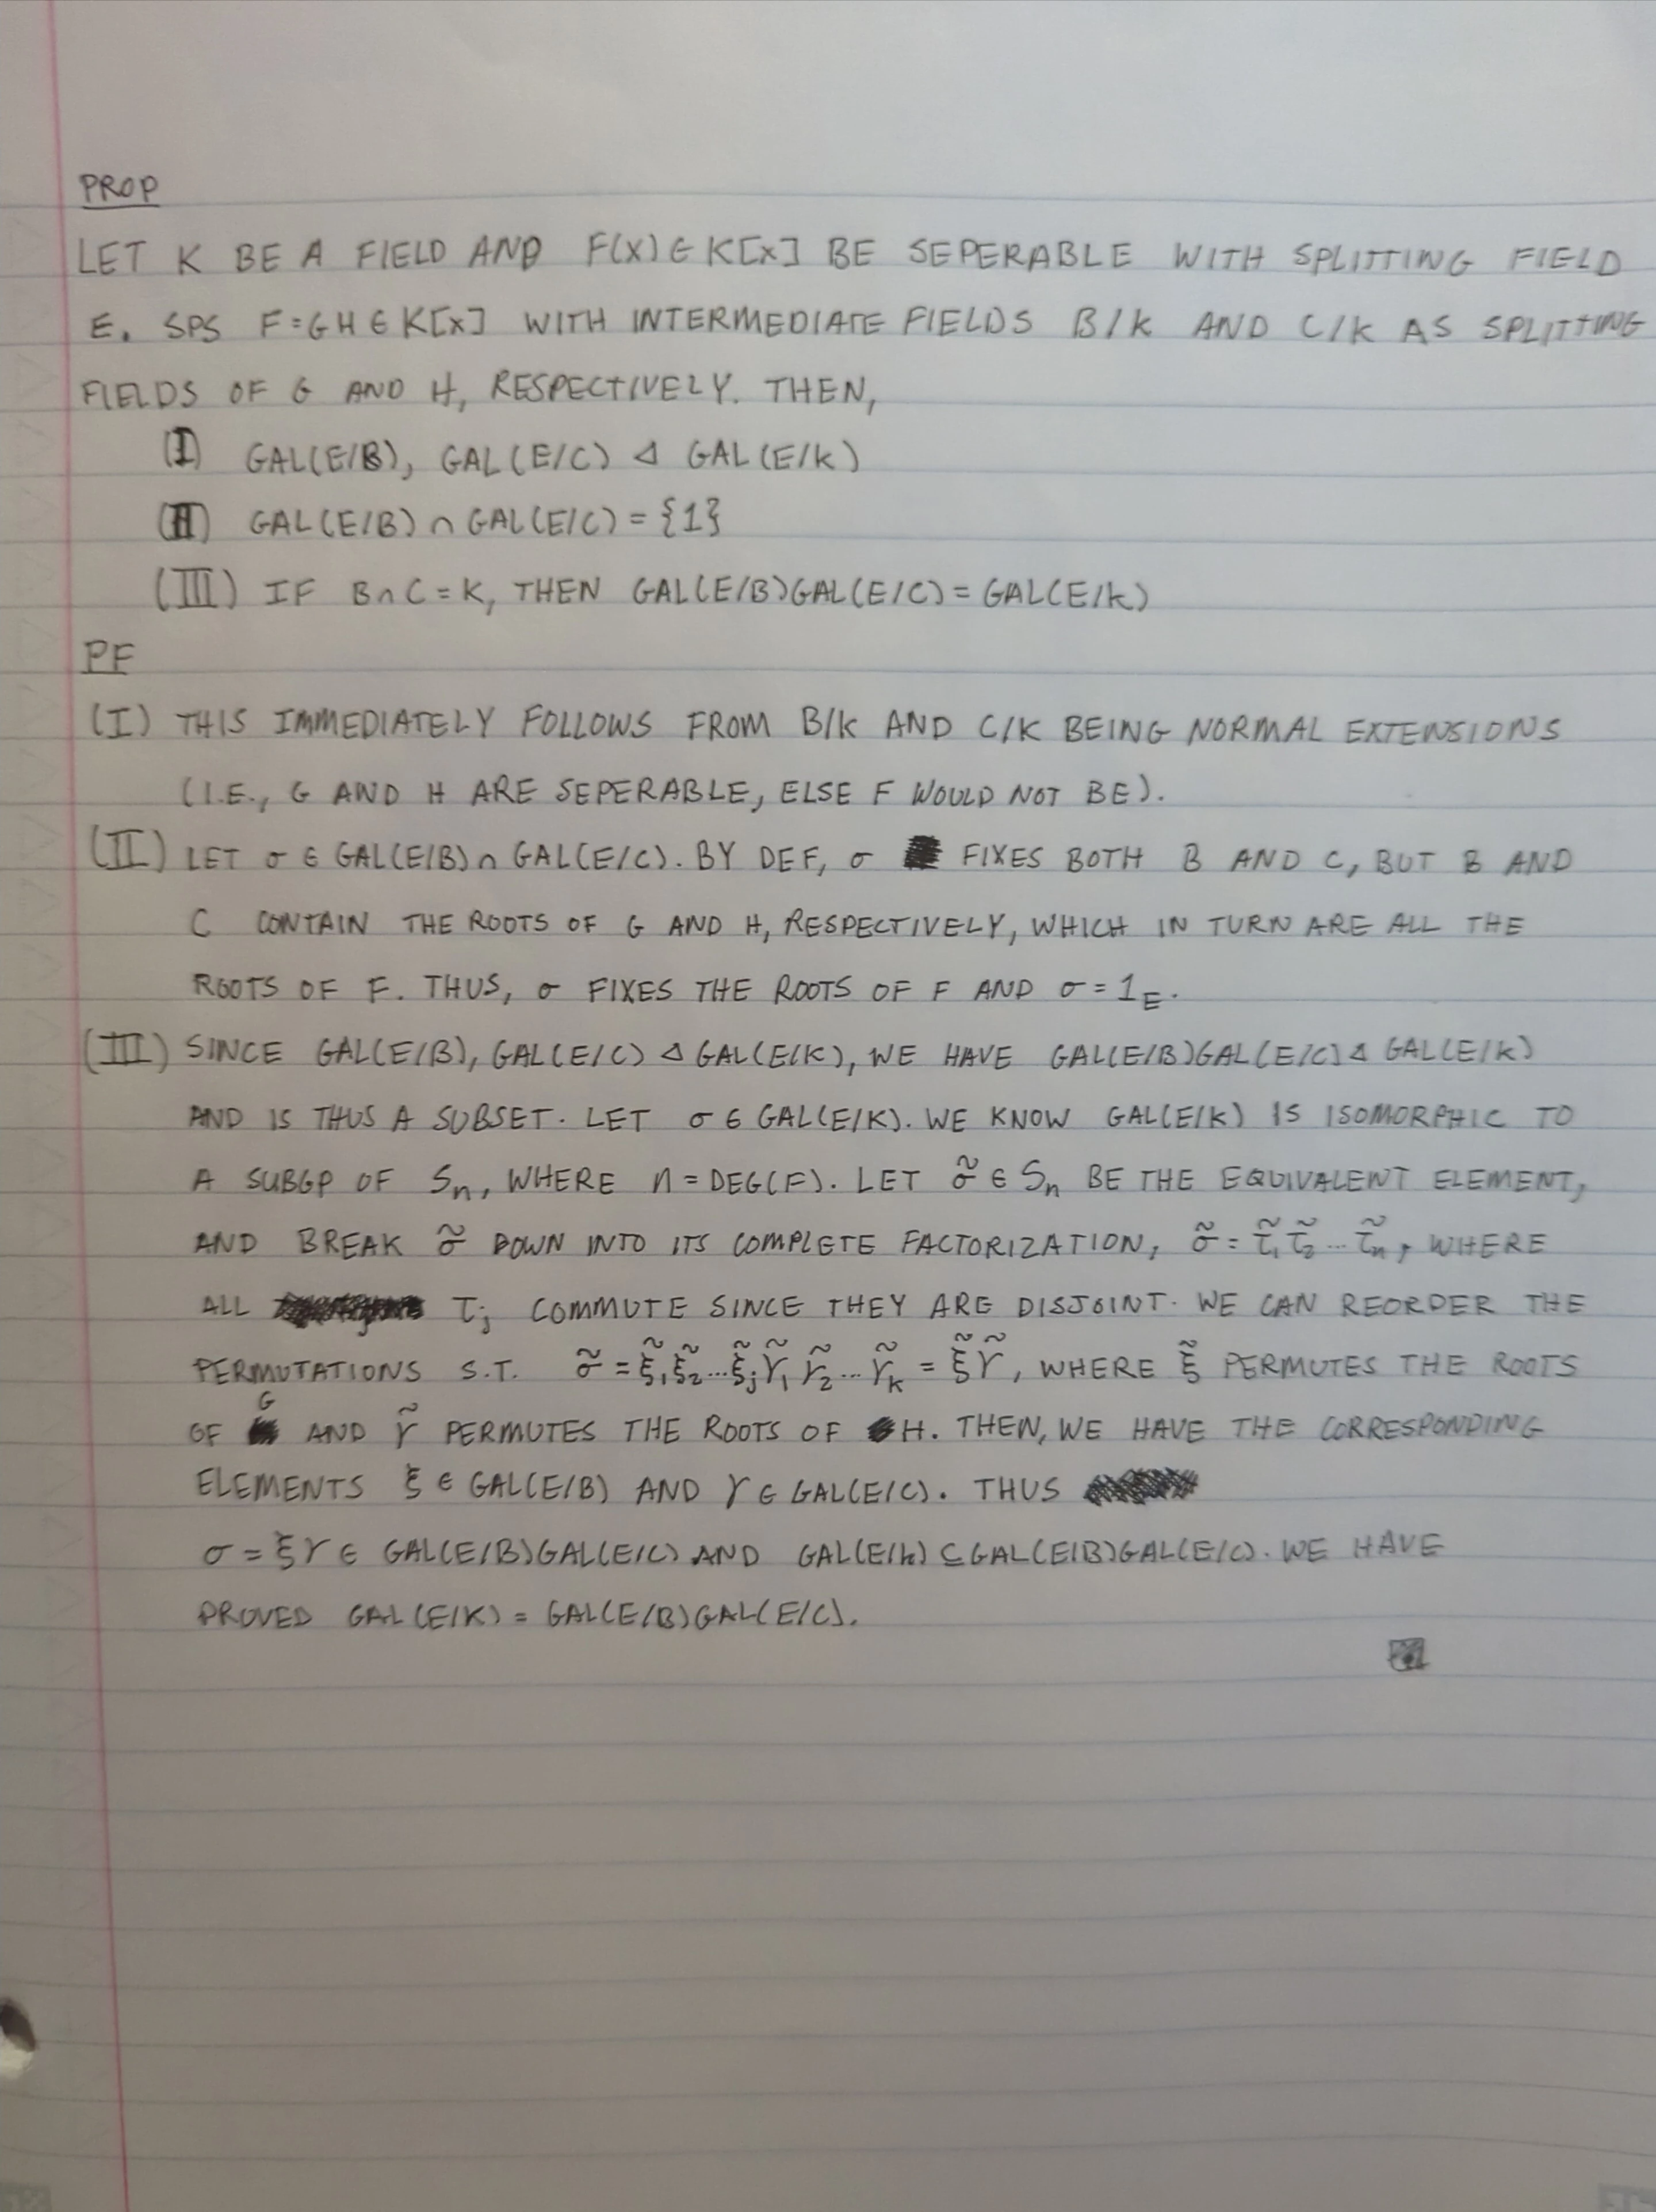 PROP
LET K BE A FIELD AND F(X) ∈ K[X] BE SEPERABLE WITH SPLITTING FIELD
E. SPS F=GH ∈ K[X] WITH INTERMEDIATE FIELDS B/K AND C/K AS SPLITTING
FIELDS OF G AND H, RESPECTIVELY. THEN,
(I) GAL(E/B), GAL(E/C) ⊲ GAL(E/K)
(II) GAL(E/B) ∩ GAL(E/C) = {1}
(III) IF B∩C = K, THEN GAL(E/B)GAL(E/C) = GAL(E/K)
PF
(I) THIS IMMEDIATELY FOLLOWS FROM B/K AND C/K BEING NORMAL EXTENSIONS
(I.E., G AND H ARE SEPERABLE, ELSE F WOULD NOT BE).
(II) LET σ ∈ GAL(E/B) ∩ GAL(E/C). BY DEF, σ FIXES BOTH B AND C, BUT B AND
C CONTAIN THE ROOTS OF G AND H, RESPECTIVELY, WHICH IN TURN ARE ALL THE
ROOTS OF F. THUS, σ FIXES THE ROOTS OF F AND σ = 1_E.
(III) SINCE GAL(E/B), GAL(E/C) ⊲ GAL(E/K), WE HAVE GAL(E/B)GAL(E/C) ⊲ GAL(E/K)
AND IS THUS A SUBSET. LET σ ∈ GAL(E/K). WE KNOW GAL(E/K) IS ISOMORPHIC TO
A SUBGP OF S_n, WHERE n = DEG(F). LET σ̃ ∈ S_n BE THE EQUIVALENT ELEMENT,
AND BREAK σ̃ DOWN INTO ITS COMPLETE FACTORIZATION, σ̃ = τ̃_1 τ̃_2 ... τ̃_n, WHERE
ALL τ_j COMMUTE SINCE THEY ARE DISJOINT. WE CAN REORDER THE
PERMUTATIONS S.T. σ̃ = ξ̃_1 ξ̃_2 ... ξ̃_j γ̃_1 γ̃_2 ... γ̃_k = ξ̃ γ̃, WHERE ξ̃ PERMUTES THE ROOTS
OF G AND γ̃ PERMUTES THE ROOTS OF H. THEN, WE HAVE THE CORRESPONDING
ELEMENTS ξ ∈ GAL(E/B) AND γ ∈ GAL(E/C). THUS
σ = ξγ ∈ GAL(E/B)GAL(E/C) AND GAL(E/K) ⊆ GAL(E/B)GAL(E/C). WE HAVE
PROVED GAL(E/K) = GAL(E/B)GAL(E/C).